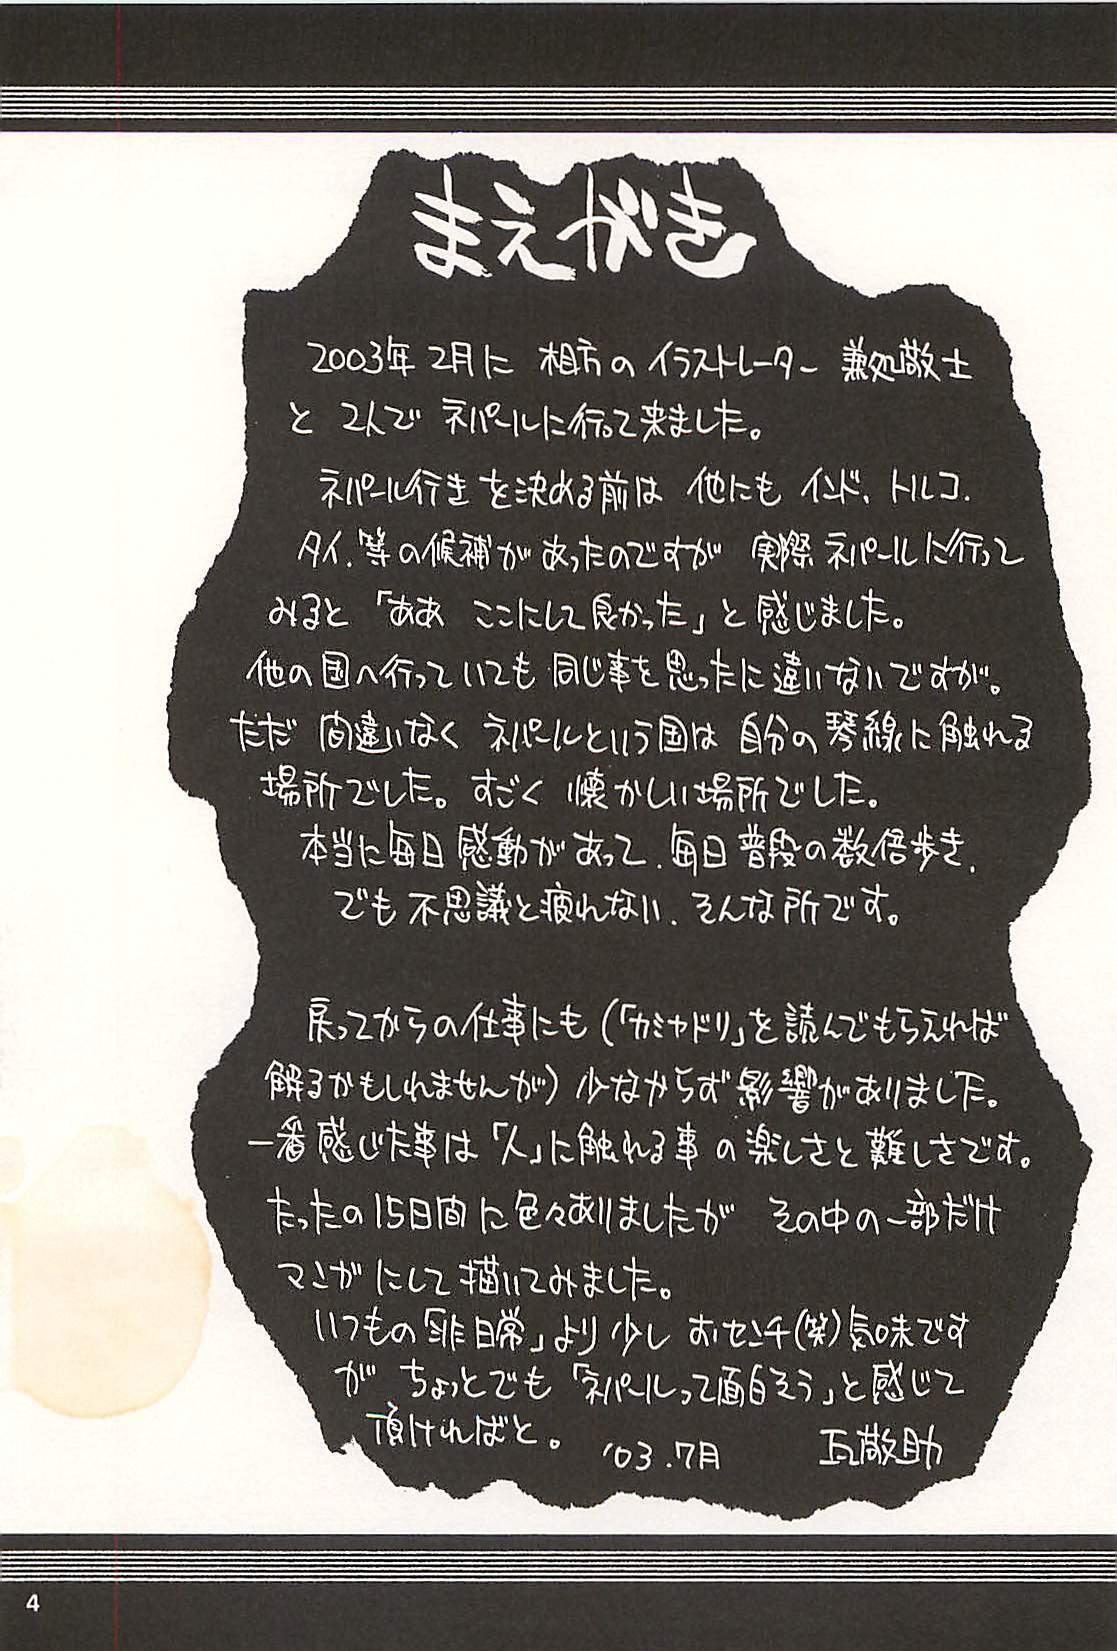 まえがき
2003年2月に 相方のイラストレーター 兼処敬士
と 2人で ネパールに行って来ました。
ネパール行きを決める前は 他にも インド、トルコ、
タイ、等の候補があったのですが 実際ネパールに行って
みると 「ああ ここにして良かった」と感じました。
他の国へ行っていても同じ事を思ったに違いないですが。
ただ 間違いなく ネパールという国は 自分の琴線に触れる
場所でした。すごく 懐かしい場所でした。
本当に毎日感動があって、毎日普段の数倍歩き、
でも不思議と疲れない、そんな所です。
戻ってからの仕事にも(「カミヤドリ」を読んでもらえれば
解るかもしれませんが)少なからず影響がありました。
一番感じた事は「人」に触れる事の楽しさと難しさです。
たったの15日間に色々ありましたが その中の一部だけ
マンガにして描いてみました。
いつもの「非日常」より少し おセンチ(笑)気味です
が ちょっとでも「ネパールって面白そう」と感じて
頂ければと。 '03.7月 瓦敬助
4